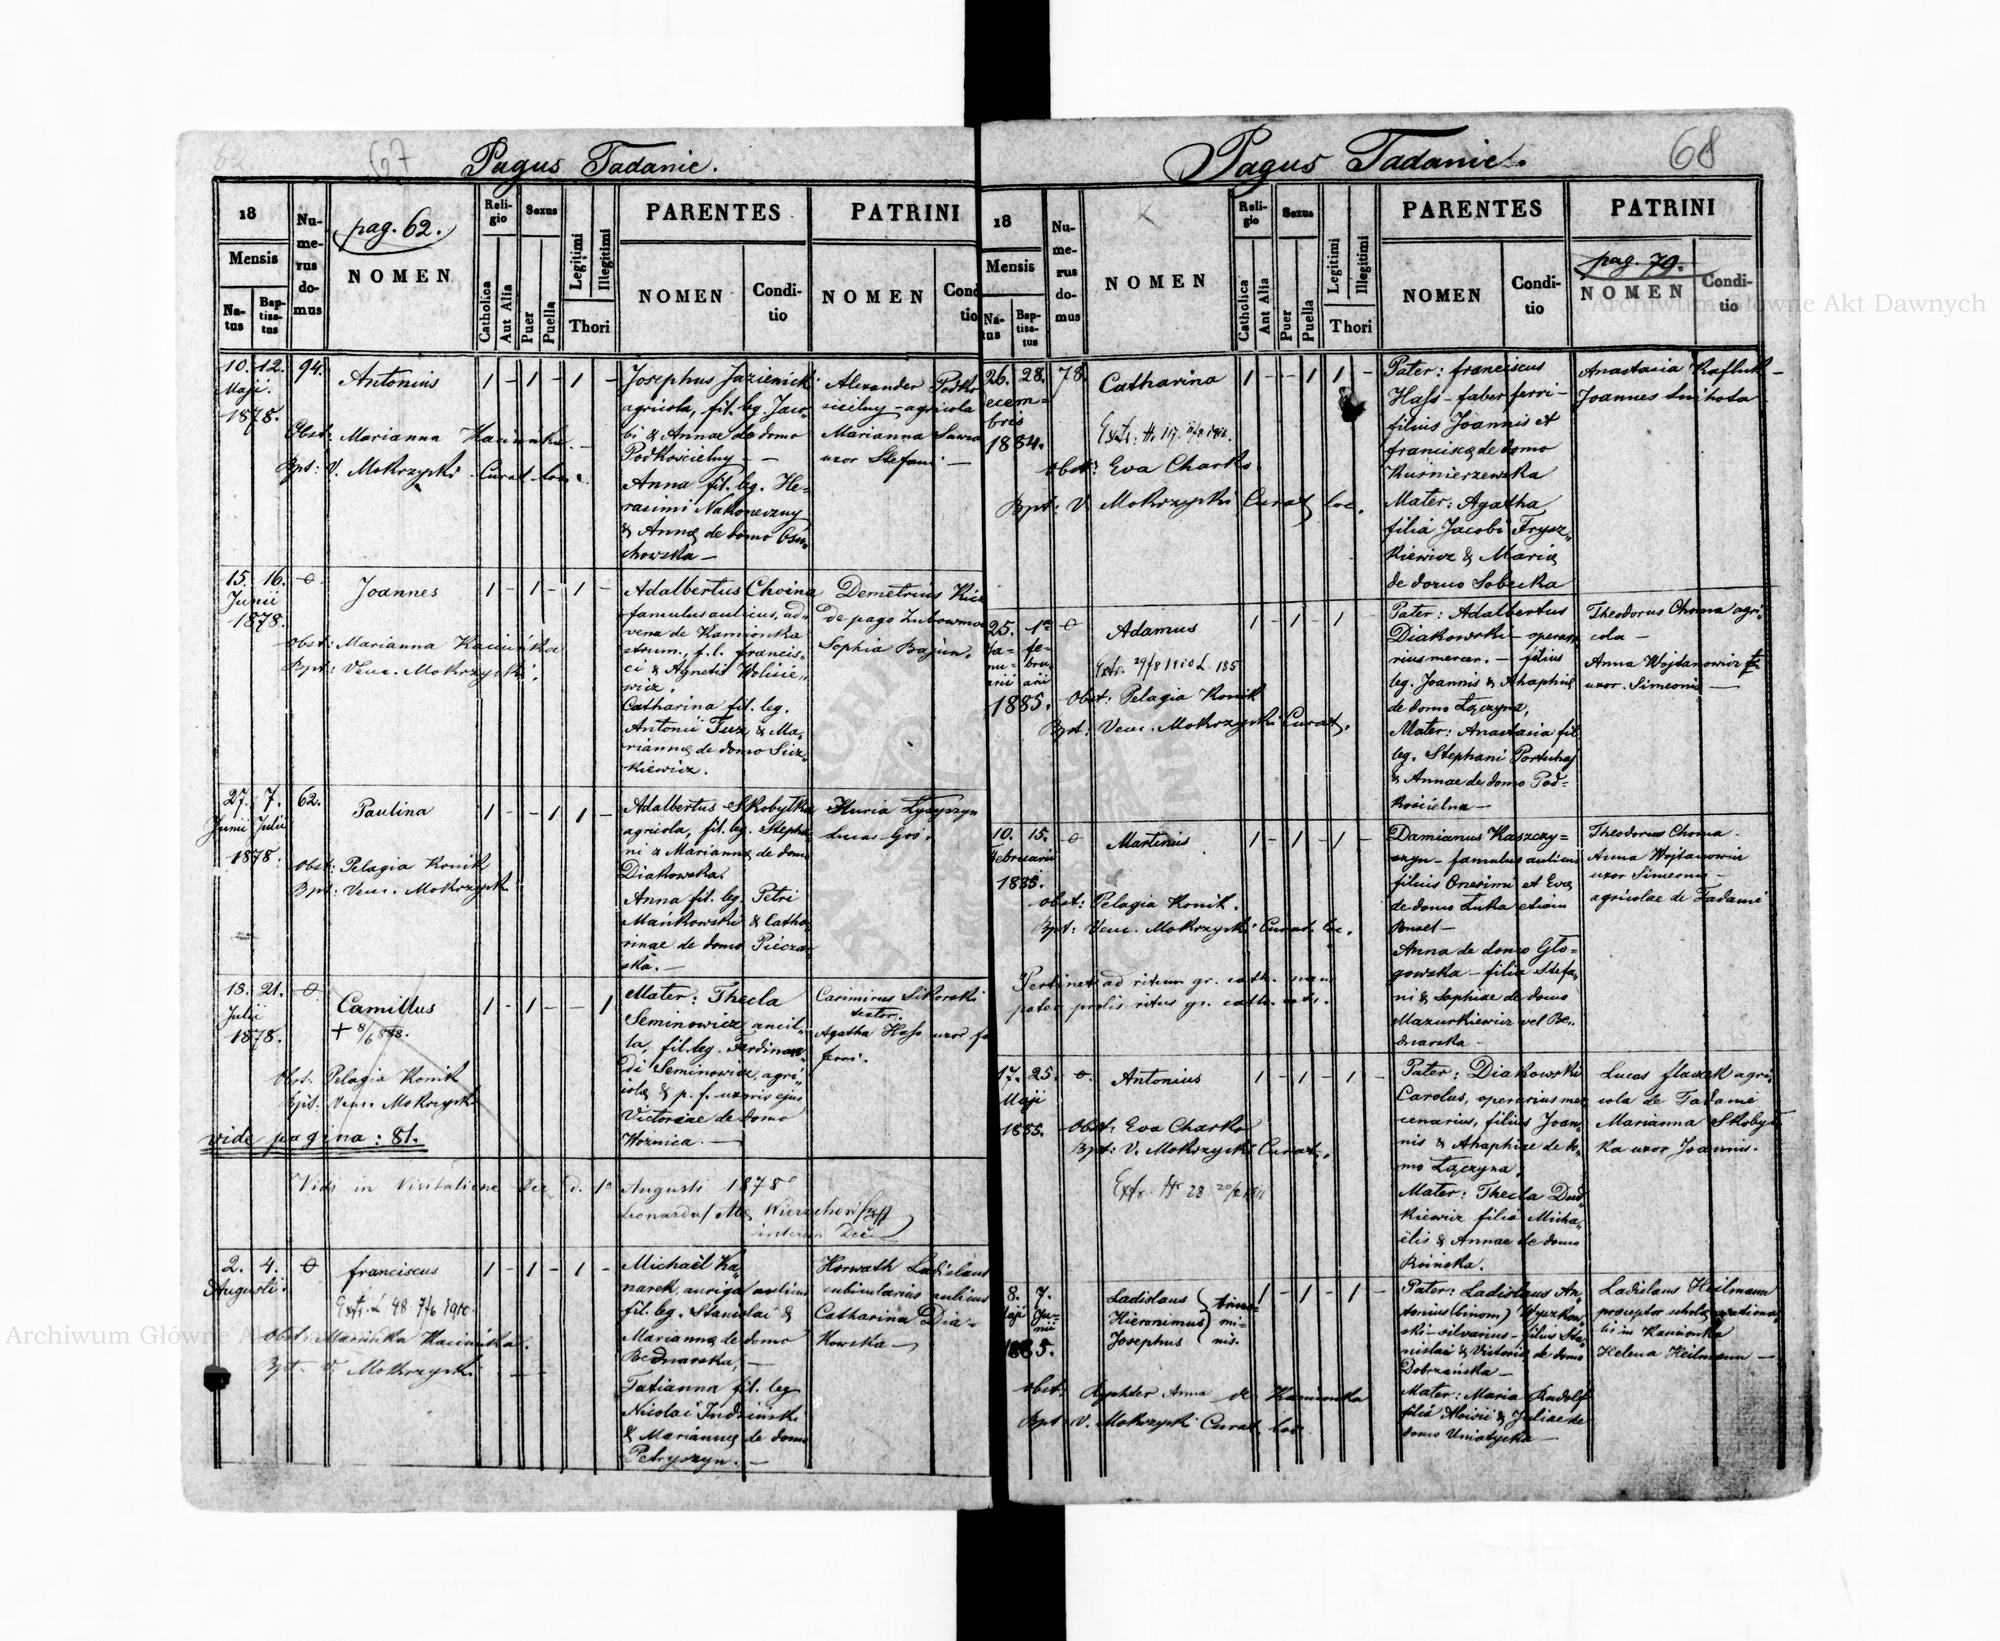 67
Pagus Tadanie.
18
Mensis
Natus
Baptisatus
Numerus domus
pag. 62.
NOMEN
Religio
Catholica
Aut Alia
Sexus
Puer
Puella
Legitimi
Illegitimi
Thori
PARENTES
NOMEN
Conditio
PATRINI
NOMEN
10. 12. 94.
Maji
1878.
Antonius
1 - 1 - 1 -
Obst: Marianna
Bpt: V. Mokrzycki Curat. loci.
Josephus Jazienicki
agricola, fil. leg. Jaco-
bi & Annae de domo
Podkościelny - -
Anna fil. leg. He-
rasimi Nakoneczny
& Annae de domo
chowska -
Alexander
agricola
Marianna
uxor Stefani -
15. 16. 0
Junii
1878.
Joannes
1 - 1 - 1 -
Obst: Marianna
Bpt: Venc. Mokrzycki.
Adalbertus Choina
famulus aulicus, ad-
vena de Kamionka
strum., f. l. francis-
ci & Agnetis
wicz.
Catharina fil. leg.
Antonii Tuz & Ma-
riannae de domo
kiewicz.
Demetrius
de pago
Sophia
27. 7. 62.
Junii Julii
1878.
Paulina
1 - - 1 1 -
obst: Pelagia Konik
Bpt: Venc. Mokrzycki
Adalbertus Skobyłka
agricola, fil. leg. Stepha-
ni & Mariannae de domo
Diakowska.
Anna fil. leg. Petri
Mańkowski & Catha-
rinae de domo
ska. -
Lucas Goś.
18. 21. 0
Julii
1878.
Camillus
+ 8/6 878.
1 - 1 - - 1
Obst: Pelagia Konik
Bpt: Venc. Mokrzycki
vide pagina: 81.
Mater: Thecla
Seminowicz ancil-
la, fil. leg. Ferdinan-
di Seminowicz, agri-
colae & p. f. uxoris ejus
Victoriae de domo
Woźnica. -
Casimirus Sikorski
Agatha Hass uxor
ferri.
Vidi in Visitatione Dec. d. 1a Augusti 1878
2. 4. 0
Augusti.
franciscus
Extr. L 48 7/6 1910.
1 - 1 - 1 -
Bpt. V. Mokrzycki
Michaël Ka-
narek, auriga aulicus
fil. leg. Stanislai &
Mariannae de domo
Bednarska, -
Tatianna fil. leg.
Nicolai
& Mariannae de domo
Petryszyn. -
Horwath Ladislaus
cubicularius aulicus
Catharina Dia-
kowska -
68
Pagus Tadanie.
18
Mensis
Natus
Baptisatus
Numerus domus
NOMEN
Religio
Catholica
Aut Alia
Sexus
Puer
Puella
Legitimi
Illegitimi
Thori
PARENTES
NOMEN
Conditio
PATRINI
pag. 79.
NOMEN
Conditio
26. 28. 78.
ecem-
bris
1884.
Catharina
1 - - 1 1 -
obst: Eva Charko
Bpt: V. Mokrzycki Curat. loc.
Pater: franciscus
Hass - faber ferri-
filius Joannis et
franciscae de domo
Kuśnierzewska
Mater: Agatha
filia Jacobi Frysz-
kiewicz & Mariae
de domo Sobecka
Anastasia
Joannes
25. 1a 0
Ja- fe-
nu- bru-
arii arii
1885.
Adamus
Extr. 29/8 1910 L. 185
1 - 1 - 1 -
Obst: Pelagia Konik
Bpt: Venc. Mokrzycki Curat.
Pater: Adalbertus
Diakowski - opera-
rius mercen. - filius
leg. Joannis & Ahaphiae
de domo Łączyna,
Mater: Anastasia fil.
leg. Stephani
& Annae de domo Pod-
kościelna -
Theodorus Choma agri-
cola -
Anna Wojtanowicz
uxor. Simeonis -
10. 15. 0
Februarii
1885.
Martinus
1 - 1 - 1 -
obst: Pelagia Konik.
Bpt: Venc. Mokrzycki Curat. loc.
Pertinet ad ritum gr. cath. nam
pater prolis ritus gr. cath. est.
Damianus Kaszczy-
szyn - famulus aulicus
filius Onesimi et Evae
de domo Łuka
Anna de domo Gło-
gowska - filia Stefa-
ni & Sophiae de domo
Mazurkiewicz vel Be-
dnarska -
Theodorus Choma -
Anna Wojtanowicz
uxor Simeonis -
agricolae de Tadanie
17. 25. 0
Maji
1885.
Antonius
1 - 1 - 1 -
Obst: Eva Charko
Bpt: V. Mokrzycki Curat.
Pater: Diakowski
Carolus, operarius mer-
cenarius, filius Joan-
nis & Ahaphiae de do-
mo Łączyna,
Mater: Thecla Dud-
kiewicz filia Micha-
ëlis & Annae de domo
Lucas agri-
cola de Tadanie
Marianna Skobył-
ka uxor Joannis.
8. 7.
Maji Ju-
nii
1885.
Ladislaus
Hieronimus
Josephus
trino-
mi-
nis.
1 - 1 - 1 -
obst: Anna de Kamionka
Bpt V. Mokrzycki Curat. loc.
Pater: Ladislaus An-
tonius (binom) Wyszkow-
ski - silvarius - filius Sta-
nislai & Victoriae de domo
Dobrzańska -
Mater: Maria Rudolf
filia Aloisii & Juliae de
domo Uniatycka -
Ladislaus Heilmann
in Kamionka
Helena Heilmann -
Archiwum Główne Akt Dawnych